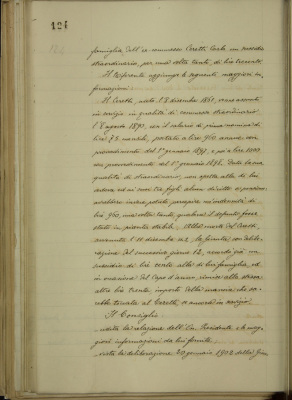 121
famiglia dell'ex commesso Ceretti Carlo un sussidio
straordinario, per una volta tanto, di lire trecento.
Il referente aggiunge le seguenti maggiori in-
formazioni:
Il Ceretti, nato l'8 dicembre 1851, venne assunto
in servizio in qualità di commesso straordinario
l'8 agosto 1890, con il salario di prima nomina di
lire 75 mensili, portato a lire 960 annue con
provvedimento del 1° gennaio 1897, e poi a lire
con provvedimento del 1° gennaio 1898. Data la sua
qualità di straordinario, non spetta alla di lui
vedova ed ai suoi tre figli alcun diritto a pensione
avrebbero invece potuto percepire un'indennità di
lire 960, una volta tanto, qualora il defunto fosse
stato in pianta stabile. Alla morte del Ceretti,
avvenuta il 10 dicembre la Giunta, con delibe-
razione del successivo giorno 12, accordò già un
sussidio di lire cento alla di lui famiglia, ed
in occasione del Capo d'anno, rimise alla stessa
altre lire trenta, importo della mancia che sa-
rebbe toccata al Ceretti, se ancora in servizio.
Il Consiglio
udita la relazione dell'Ill. Presidente e le mag-
giori informazioni da lui fornite;
vista la deliberazione 29 gennaio 1902 della Giun